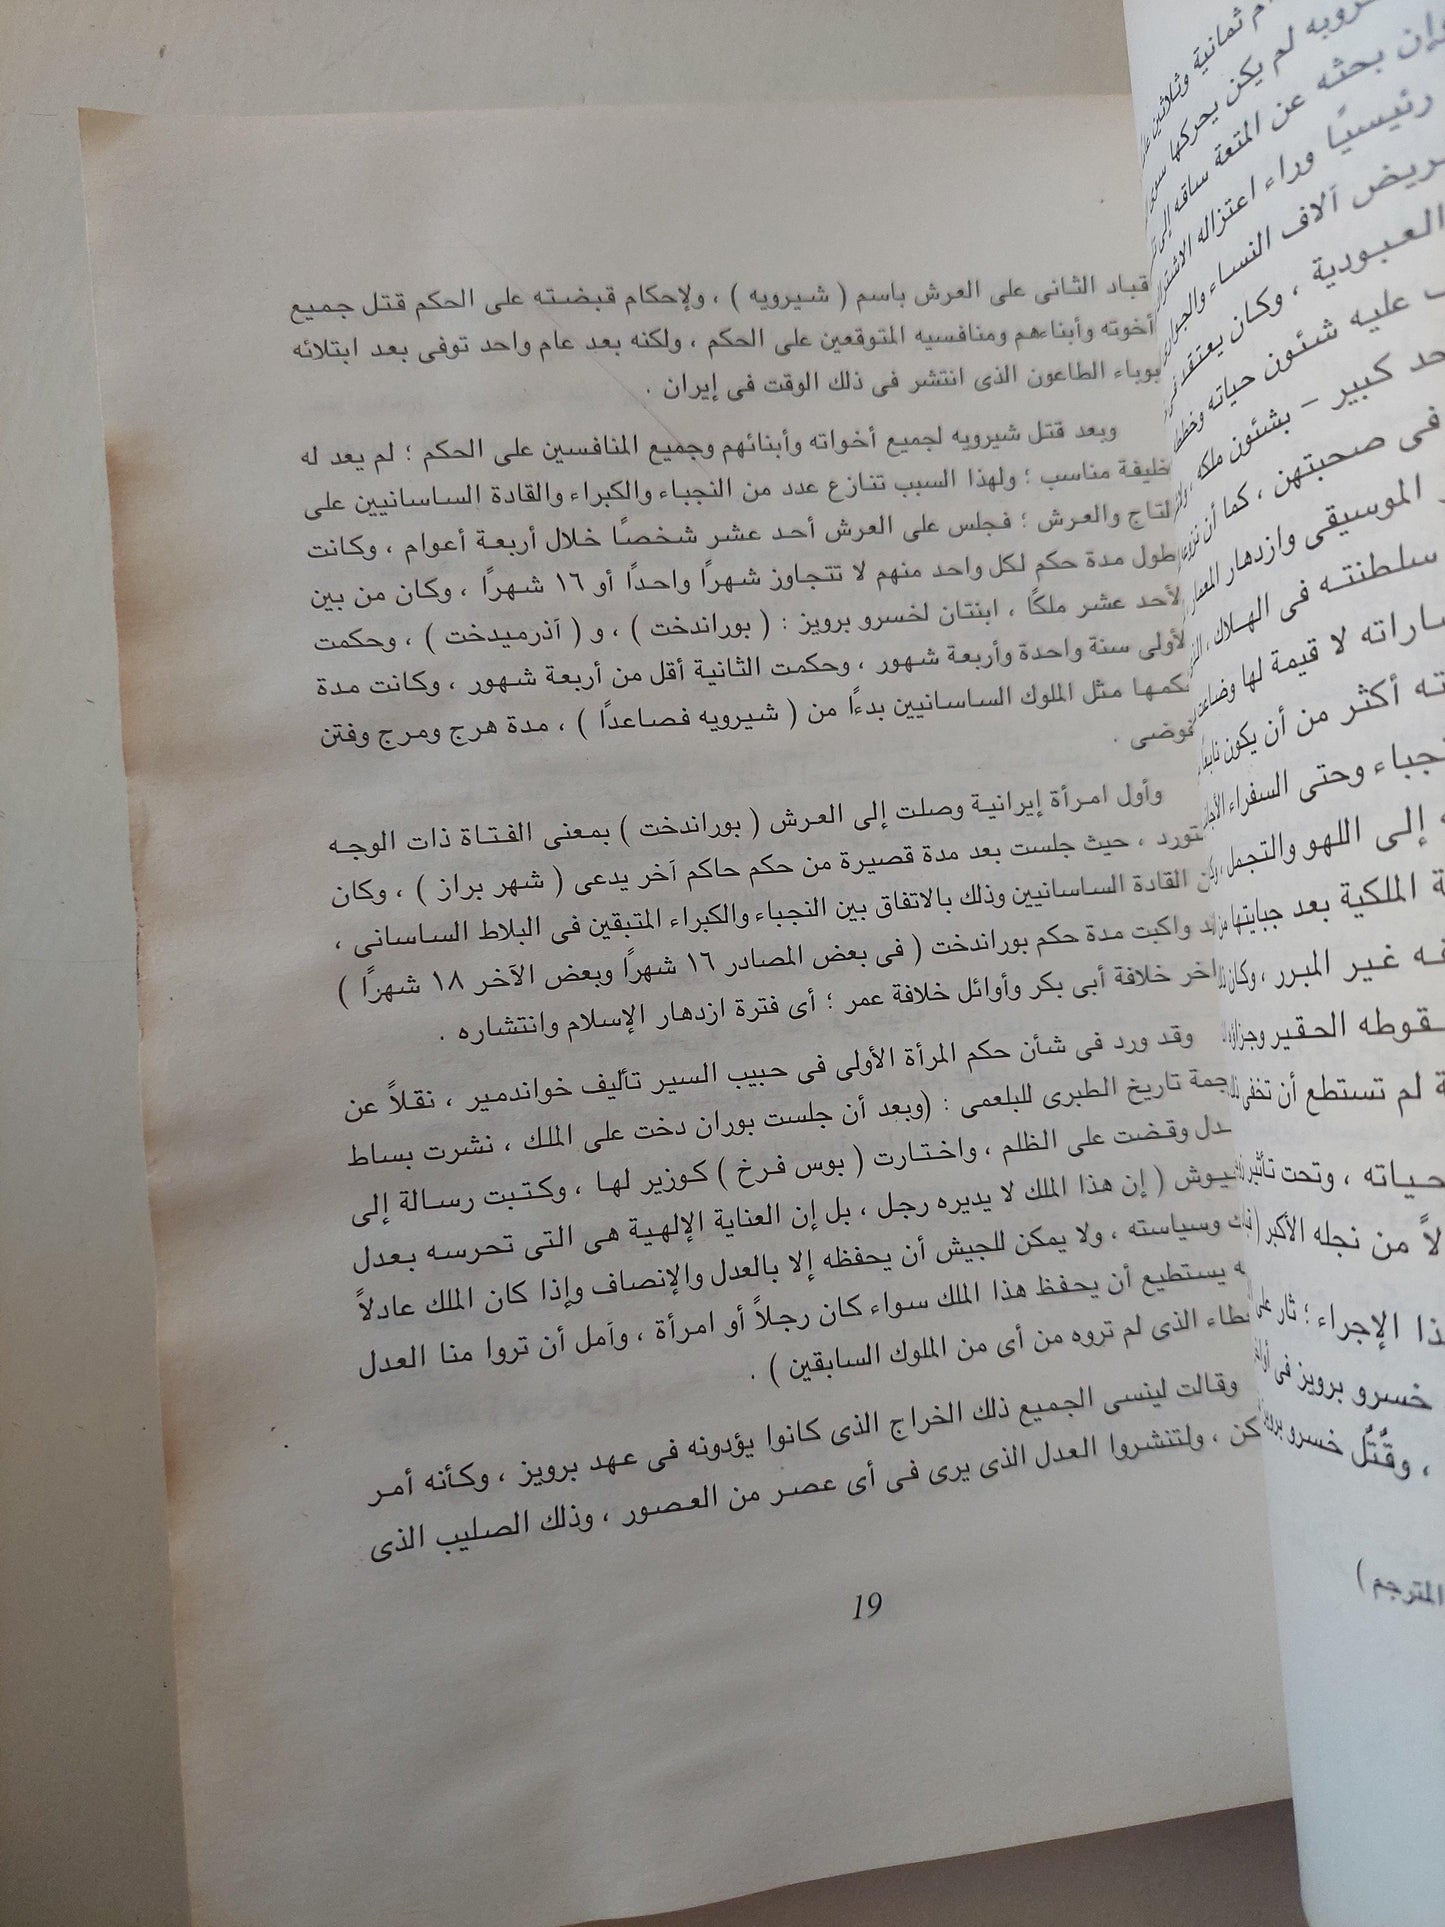 قباد الثانى على العرش باسم ( شيرويه ) ، ولإحكام قبضته على الحكم قتل جميع
أخوته وأبناءهم ومنافسيه المتوقعين على الحكم ، ولكنه بعد عام واحد توفى بعد ابتلائه
بوباء الطاعون الذى انتشر فى ذلك الوقت فى إيران .
وبعد قتل شيرويه لجميع أخواته وأبنائهم وجميع المنافسين على الحكم ؛ لم يعد له
خليفة مناسب ؛ ولهذا السبب تنازع عدد من النجباء والكبراء والقادة الساسانيين على
لتاج والعرش ؛ فجلس على العرش أحد عشر شخصًا خلال أربعة أعوام ، وكانت
طول مدة حكم لكل واحد منهم لا تتجاوز شهرًا واحدًا أو ١٦ شهرًا ، وكان من بين
لأحد عشر ملكًا ، ابنتان لخسرو برويز : ( بوراندخت ) ، و ( آذرميدخت ) ، وحكمت
لأولى سنة واحدة وأربعة شهور ، وحكمت الثانية أقل من أربعة شهور ، وكانت مدة
كمها مثل الملوك الساسانيين بدءًا من ( شيرويه فصاعدًا ) ، مدة هرج ومرج وفتن
فوضى .
وأول امرأة إيرانية وصلت إلى العرش ( بوراندخت ) بمعنى الفتاة ذات الوجه
تورد ، حيث جلست بعد مدة قصيرة من حكم حاكم آخر يدعى ( شهر براز ) ، وكان
القادة الساسانيين وذلك بالاتفاق بين النجباء والكبراء المتبقين فى البلاط الساسانى ،
واكبت مدة حكم بوراندخت ( فى بعض المصادر ١٦ شهرًا وبعض الآخر ١٨ شهرًا )
اخر خلافة أبى بكر وأوائل خلافة عمر ؛ أى فترة ازدهار الإسلام وانتشاره .
وقد ورد فى شأن حكم المرأة الأولى فى حبيب السير تأليف خواندمير ، نقلاً عن
جمة تاريخ الطبرى للبلعمى : (وبعد أن جلست بوران دخت على الملك ، نشرت بساط
دل وقضت على الظلم ، واختارت ( بوس فرخ ) كوزير لها ، وكتبت رسالة إلى
يوش ( إن هذا الملك لا يديره رجل ، بل إن العناية الإلهية هى التى تحرسه بعدل
وسياسته ، ولا يمكن للجيش أن يحفظه إلا بالعدل والإنصاف وإذا كان الملك عادلاً
ه يستطيع أن يحفظ هذا الملك سواء كان رجلاً أو امرأة ، وآمل أن تروا منا العدل
طاء الذى لم تروه من أى من الملوك السابقين ) .
وقالت لينسى الجميع ذلك الخراج الذى كانوا يؤدونه فى عهد برويز ، وكأنه أمر
كن ، ولتنشروا العدل الذى يرى فى أى عصر من العصور ، وذلك الصليب الذى
19
م ثمانية وثلاثين
روبه لم يكن يحركها سوى
وإن بحثه عن المتعة ساقه إلى
رئيسيًا وراء اعتزاله
ريض آلاف النساء والجوارى
العبودية ، وكان يعتقد
عليه شئون حياته
حد كبير – بشئون ملكه
فى صحبتهن ، كما أن
الموسيقى وازدهار
سلطنته فى الهلاك
ساراته لا قيمة لها
ته أكثر من أن يكون
جباء وحتى السفراء
إلى اللهو والتجمل
ة الملكية بعد جبايتها
ه غير المبرر ، وكان
قوطه الحقير
ة لم تستطع أن تخفى
حياته ، وتحت تأثير
لاً من نجله الأكبر
ذا الإجراء ؛ ثار على
خسرو برويز فى
، وقُتل خسرو
المترجم )